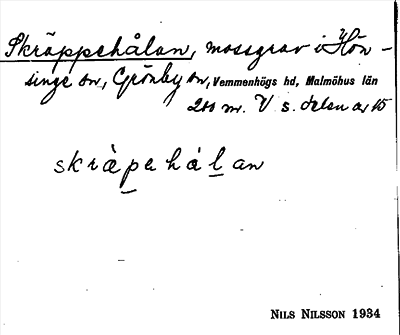 Skräppehålan, mossgrav i Hön-
singe by, Grönby sn, Vemmenhögs hd, Malmöhus län
200 m. V s. delen av 15
skràpehålan
NILS NILSSON 1934